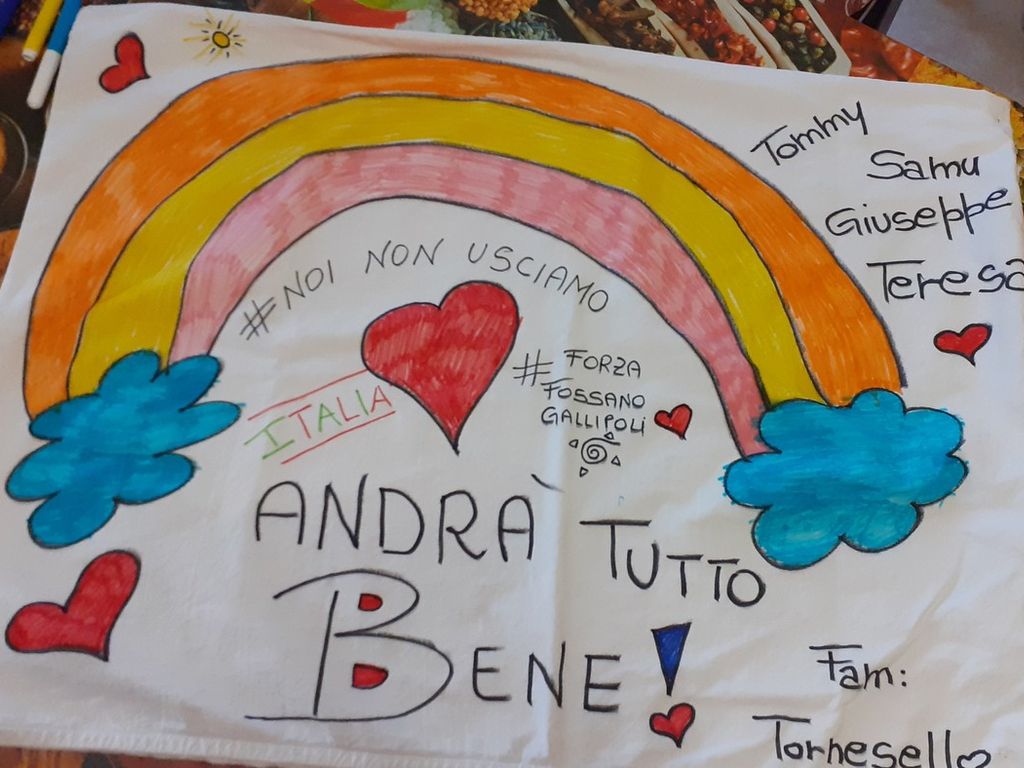 Tommy
Samu
Giuseppe
Teresa
#NOI NON USCIAMO
# FORZA
FOSSANO
GALLIPOLI
ITALIA
ANDRÀ TUTTO
BENE!
Fam:
Tornesello